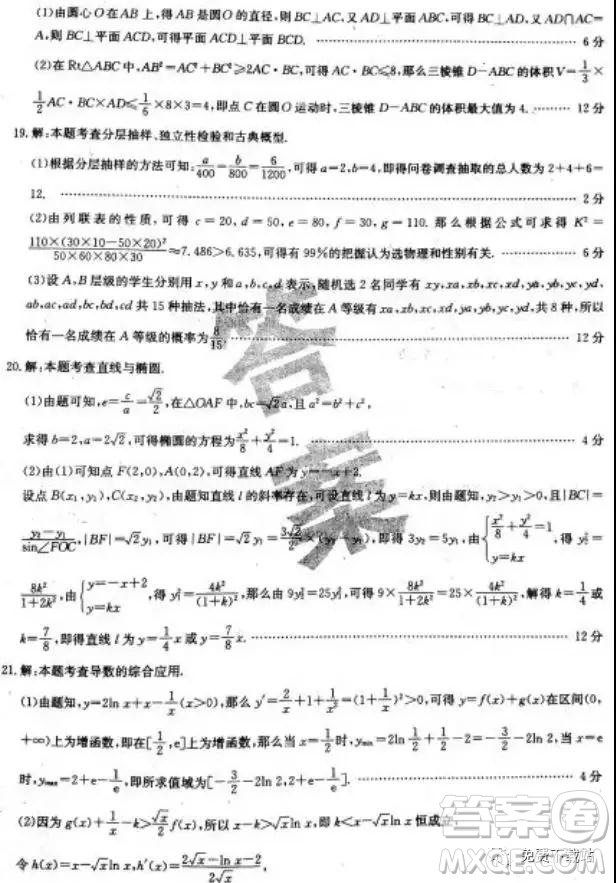 (1)由圆心O在AB上,得AB是圆O的直径,则BC⊥AC,又AD⊥平面ABC,可得BC⊥AD,又AD∩AC=
A,则BC⊥平面ACD,可得平面ACD⊥平面BCD. 6分
(2)在Rt△ABC中,AB²=AC²+BC²≥2AC·BC,可得AC·BC≤8,那么三棱锥D-ABC的体积V=1/3×
1/2 AC·BC×AD≤1/6×8×3=4,即点C在圆O运动时,三棱锥D-ABC的体积最大值为4. 12分
19.解:本题考查分层抽样、独立性检验和古典概型.
(1)根据分层抽样的方法可知:a/400=b/800=6/1200,可得a=2,b=4,即得问卷调查抽取的总人数为2+4+6=
12. 2分
(2)由列联表的性质,可得c=20,d=50,e=80,f=30,g=110.那么根据公式可求得K²=
110×(30×10-50×20)²/50×60×80×30≈7.486>6.635,可得有99%的把握认为选物理和性别有关. 6分
(3)设A、B层级的学生分别用x,y和a,b,c,d表示,随机选2名同学有xy,xa,xb,xc,xd,ya,yb,yc,yd,
ab,ac,ad,bc,bd,cd共15种抽法,其中恰有一名成绩在A等级有xa,xb,xc,xd,ya,yb,yc,yd,共8种,所以
恰有一名成绩在A等级的概率为8/15. 12分
20.解:本题考查直线与椭圆.
(1)由题可知,e=c/a=√2/2,在△OAF中,bc=√2a,且a²=b²+c²,
求得b=2,a=2√2,可得椭圆的方程为x²/8+y²/4=1. 4分
(2)由(1)可知点F(2,0),A(0,2),可得直线AF为y=-x+2.
设点B(x₁,y₁),C(x₂,y₂),由题知直线l的斜率存在,可设直线l为y=kx,则由题知,y₂>y₁>0,且|BC|=
y₂-y₁/sin∠FOC,|BF|=√2y₁,可得|BF|=√2y₁=3√2/2×(y₂-y₁),即得3y₂=5y₁,由{x²/8+y²/4=1 y=kx,得y₂²=
8k²/1+2k²,由{y=-x+2 y=kx,得y₁²=4k²/(1+k)²,那么由9y₂²=25y₁²,可得9×8k²/1+2k²=25×4k²/(1+k)²,解得k=1/4或
k=7/8,即得直线l为y=1/4x或y=7/8x. 12分
21.解:本题考查导数的综合应用.
(1)由题知,y=2ln x+x-1/x(x>0),那么y′=2/x+1+1/x²=(1+1/x)²>0,可得y=f(x)+g(x)在区间(0,
+∞)上为增函数,即在[1/2,e]上为增函数,那么当x=1/2时,yₘᵢₙ=2ln 1/2+1/2-2=-3/2-2ln 2,当x=e
时,yₘₐₓ=2+e-1/e,即所求值域为[-3/2-2ln 2,2+e-1/e]. 4分
(2)因为g(x)+1/x-k>√x/2 f(x),所以x-k>√x ln x,即k<x-√x ln x恒成立.
令h(x)=x-√x ln x,h′(x)=2√x-ln x-2/2√x,
答案
答案卷
MXQE.COM
免费下载站